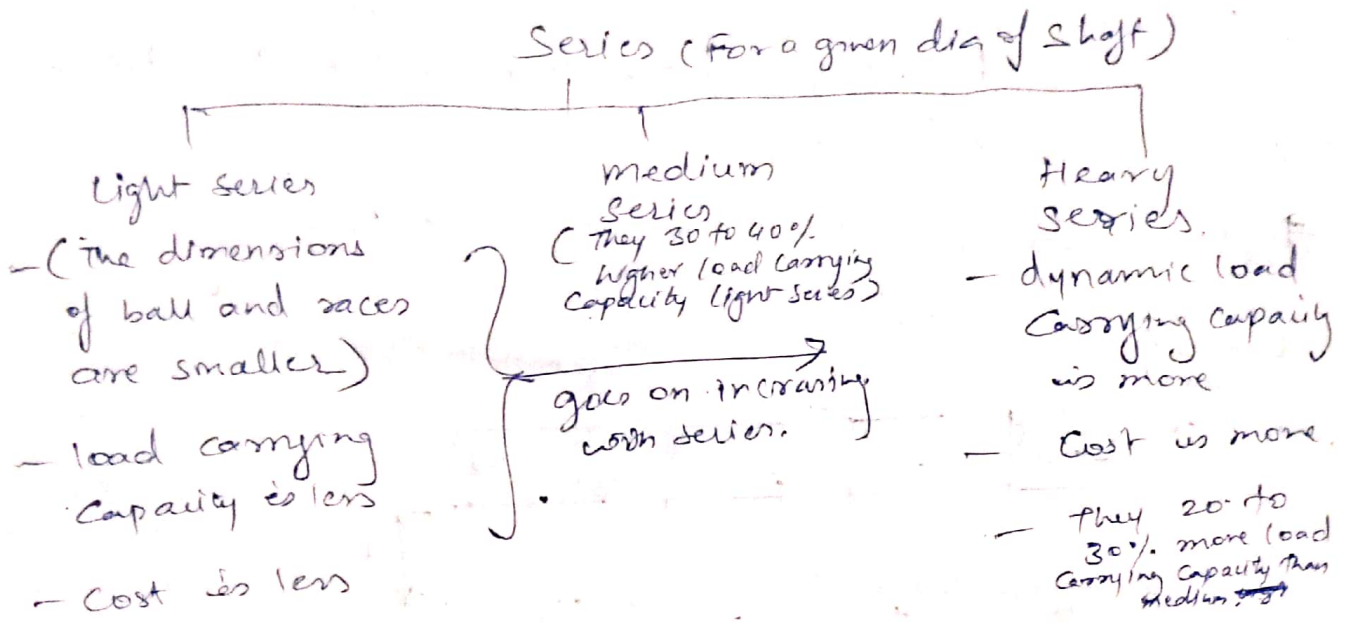 Series (For a given dia of shaft)
Light series
- (The dimensions
of ball and races
are smaller)
- load carrying
capacity is less
- Cost is less
medium
series
( They 30 to 40%
higher load carrying
capacity light series)
goes on increasing
with series.
Heavy
series.
- dynamic load
carrying capacity
is more
- Cost is more
- They 20 to
30% more load
carrying capacity than
medium